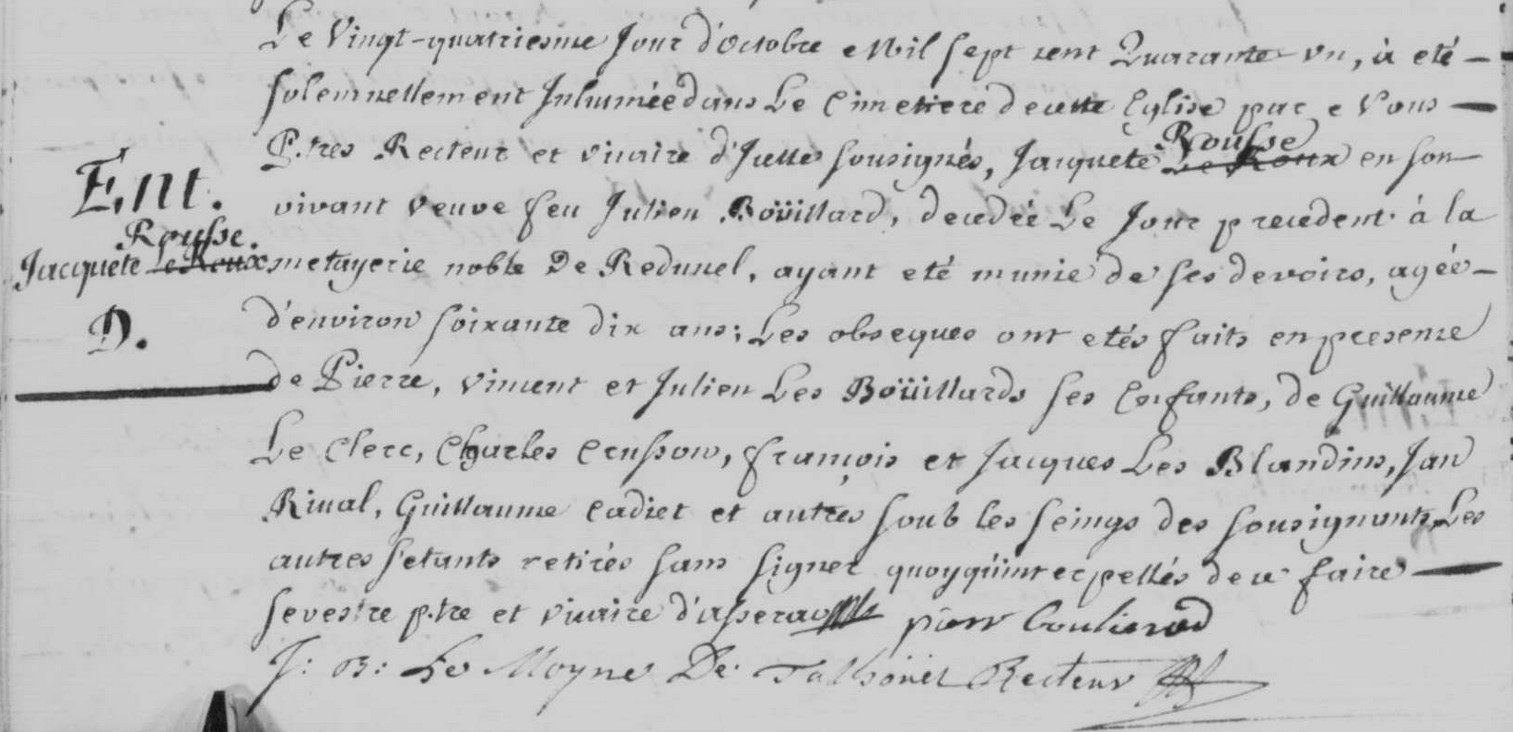 Le Vingt-quatriesme Jour d'Octobre Mil sept cent Quarante un, à eté
solemnellement Inhumée dans Le Cimetiere de cette Eglise par Nous
P.tres Recteur et vicaire d'Icelle sousignés, Jacquete Rousse Le Roux en son
Ent.
vivant veuve feu Julien Boüillard, decedée Le Jour precedent à la
Rousse.
Jacquete Le Roux
metayerie noble De Redunel, ayant eté munie de ses devoirs, agée
D.
d'environ soixante dix ans; Les obseques ont etés faits en presence
de Pierre, Vincent et Julien Les Boüillards ses Enfants, de Guillaume
Le Clerc, Charles Crusson, François et Jacques Les Blandins, Jan
Rival, Guillaume Cadiet et autres soub les seings des sousignants, Les
autres s'etants retirés sans signer quoyqüinterpellés de ce faire
sevestre p.tre et vicaire d'asserac pierr
J: B: Le Moyne De Talhoüet Recteur